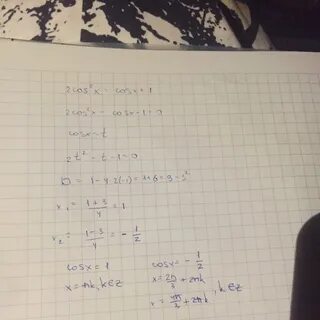 2cos²x - cosx = 1
2cos²x - cosx - 1 = 0
cosx = t
2t² - t - 1 = 0
D = 1 - 4·2(-1) = 1+8 = 9 = 3²
x₁ = (1+3)/4 = 1
x₂ = (1-3)/4 = -1/2
cosx = 1
x = πk, k∈z
cosx = -1/2
x = 2π/3 + 2πk
x = 4π/3 + 2πk, k∈z